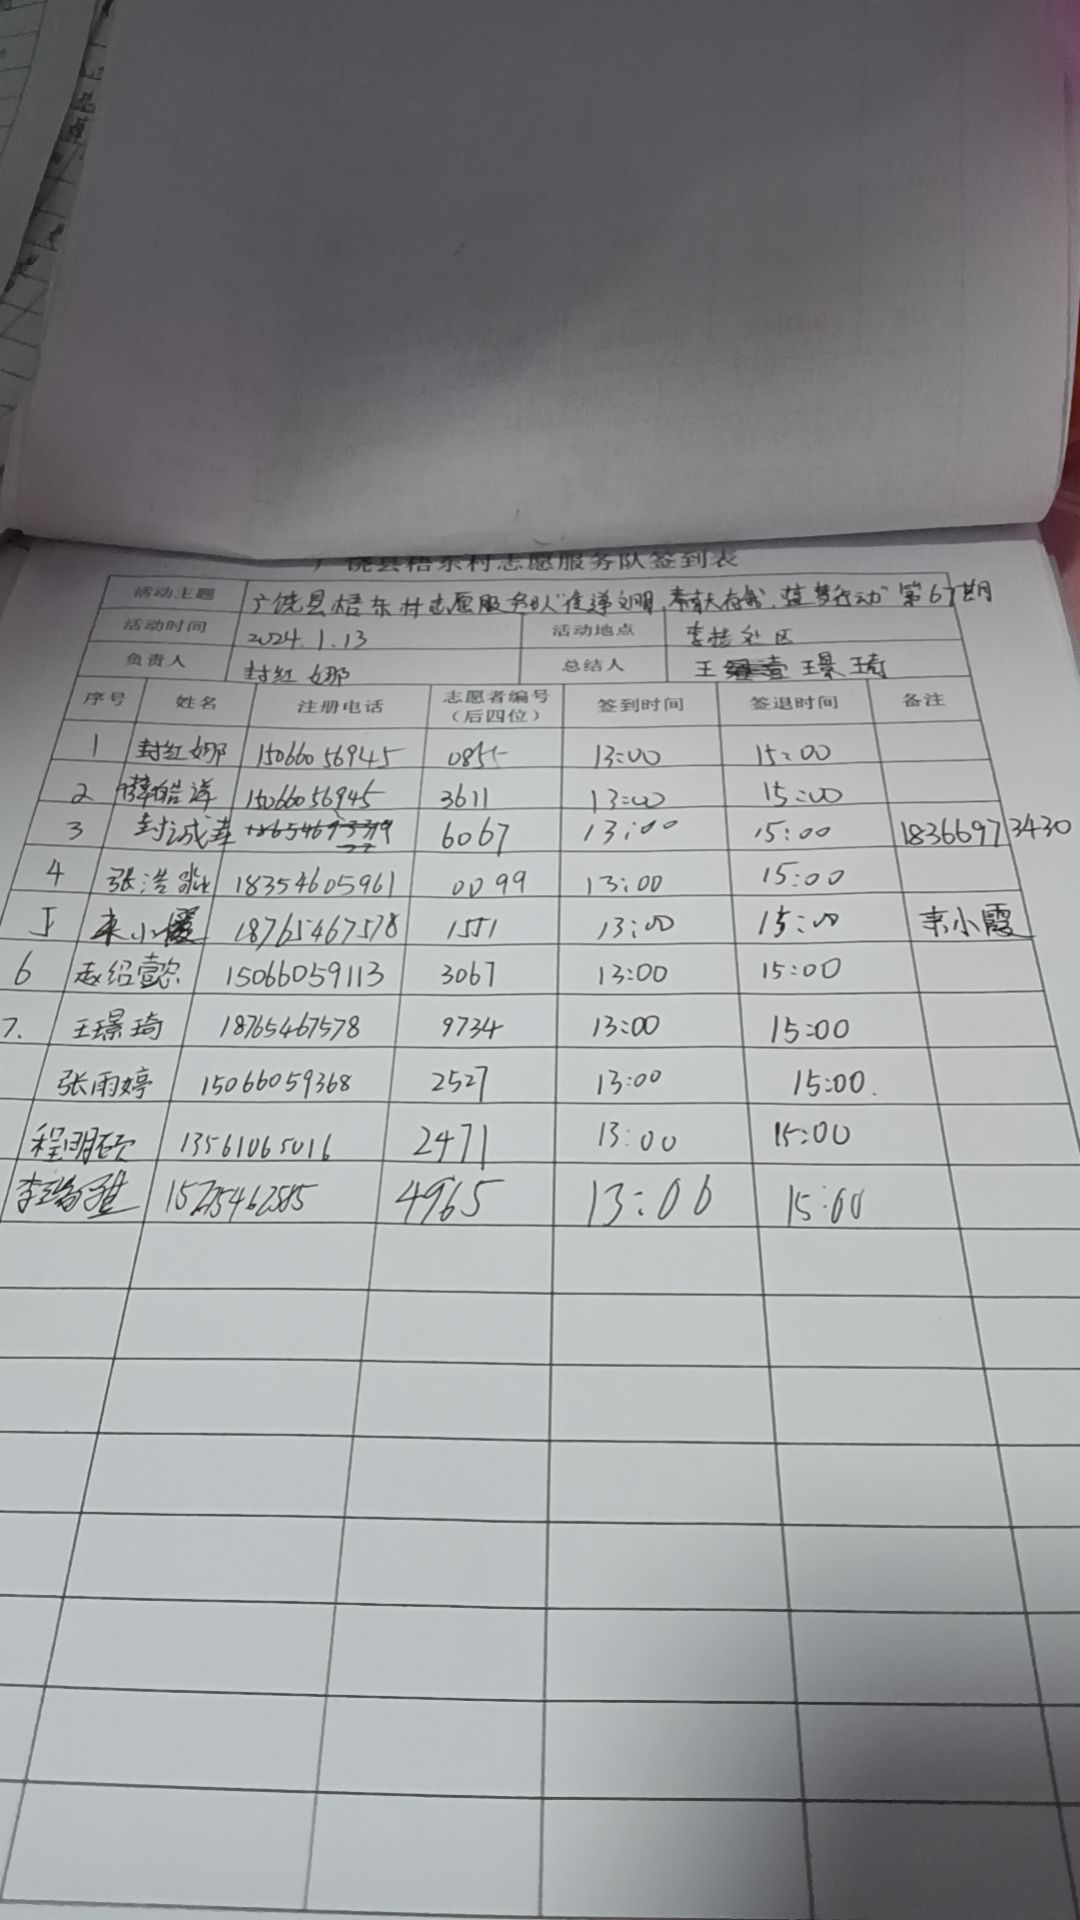 广饶县梧东村志愿服务队签到表
活动主题 广饶县梧东村志愿服务队"传递文明,奉献有我,蓝梦行动"第67期
活动时间 2024.1.13 活动地点 李桂社区
负责人 封红娜 总结人 王 王景琦
序号 姓名 注册电话 志愿者编号(后四位) 签到时间 签退时间 备注
1 封红娜 15066056945 0855 13:00 15:00
2 薛皓洋 15066056945 3611 13:00 15:00
3 封诚 6067 13:00 15:00 18366973430
4 张浩 18354605961 0099 13:00 15:00
5 来小霞 18765467578 1551 13:00 15:00 来小霞
6 赵绍懿 15066059113 3067 13:00 15:00
7. 王璟琦 18765467578 9734 13:00 15:00
张雨婷 15066059368 2527 13:00 15:00.
程明硕 13561065016 2471 13:00 15:00
李 4965 13:00 15:00